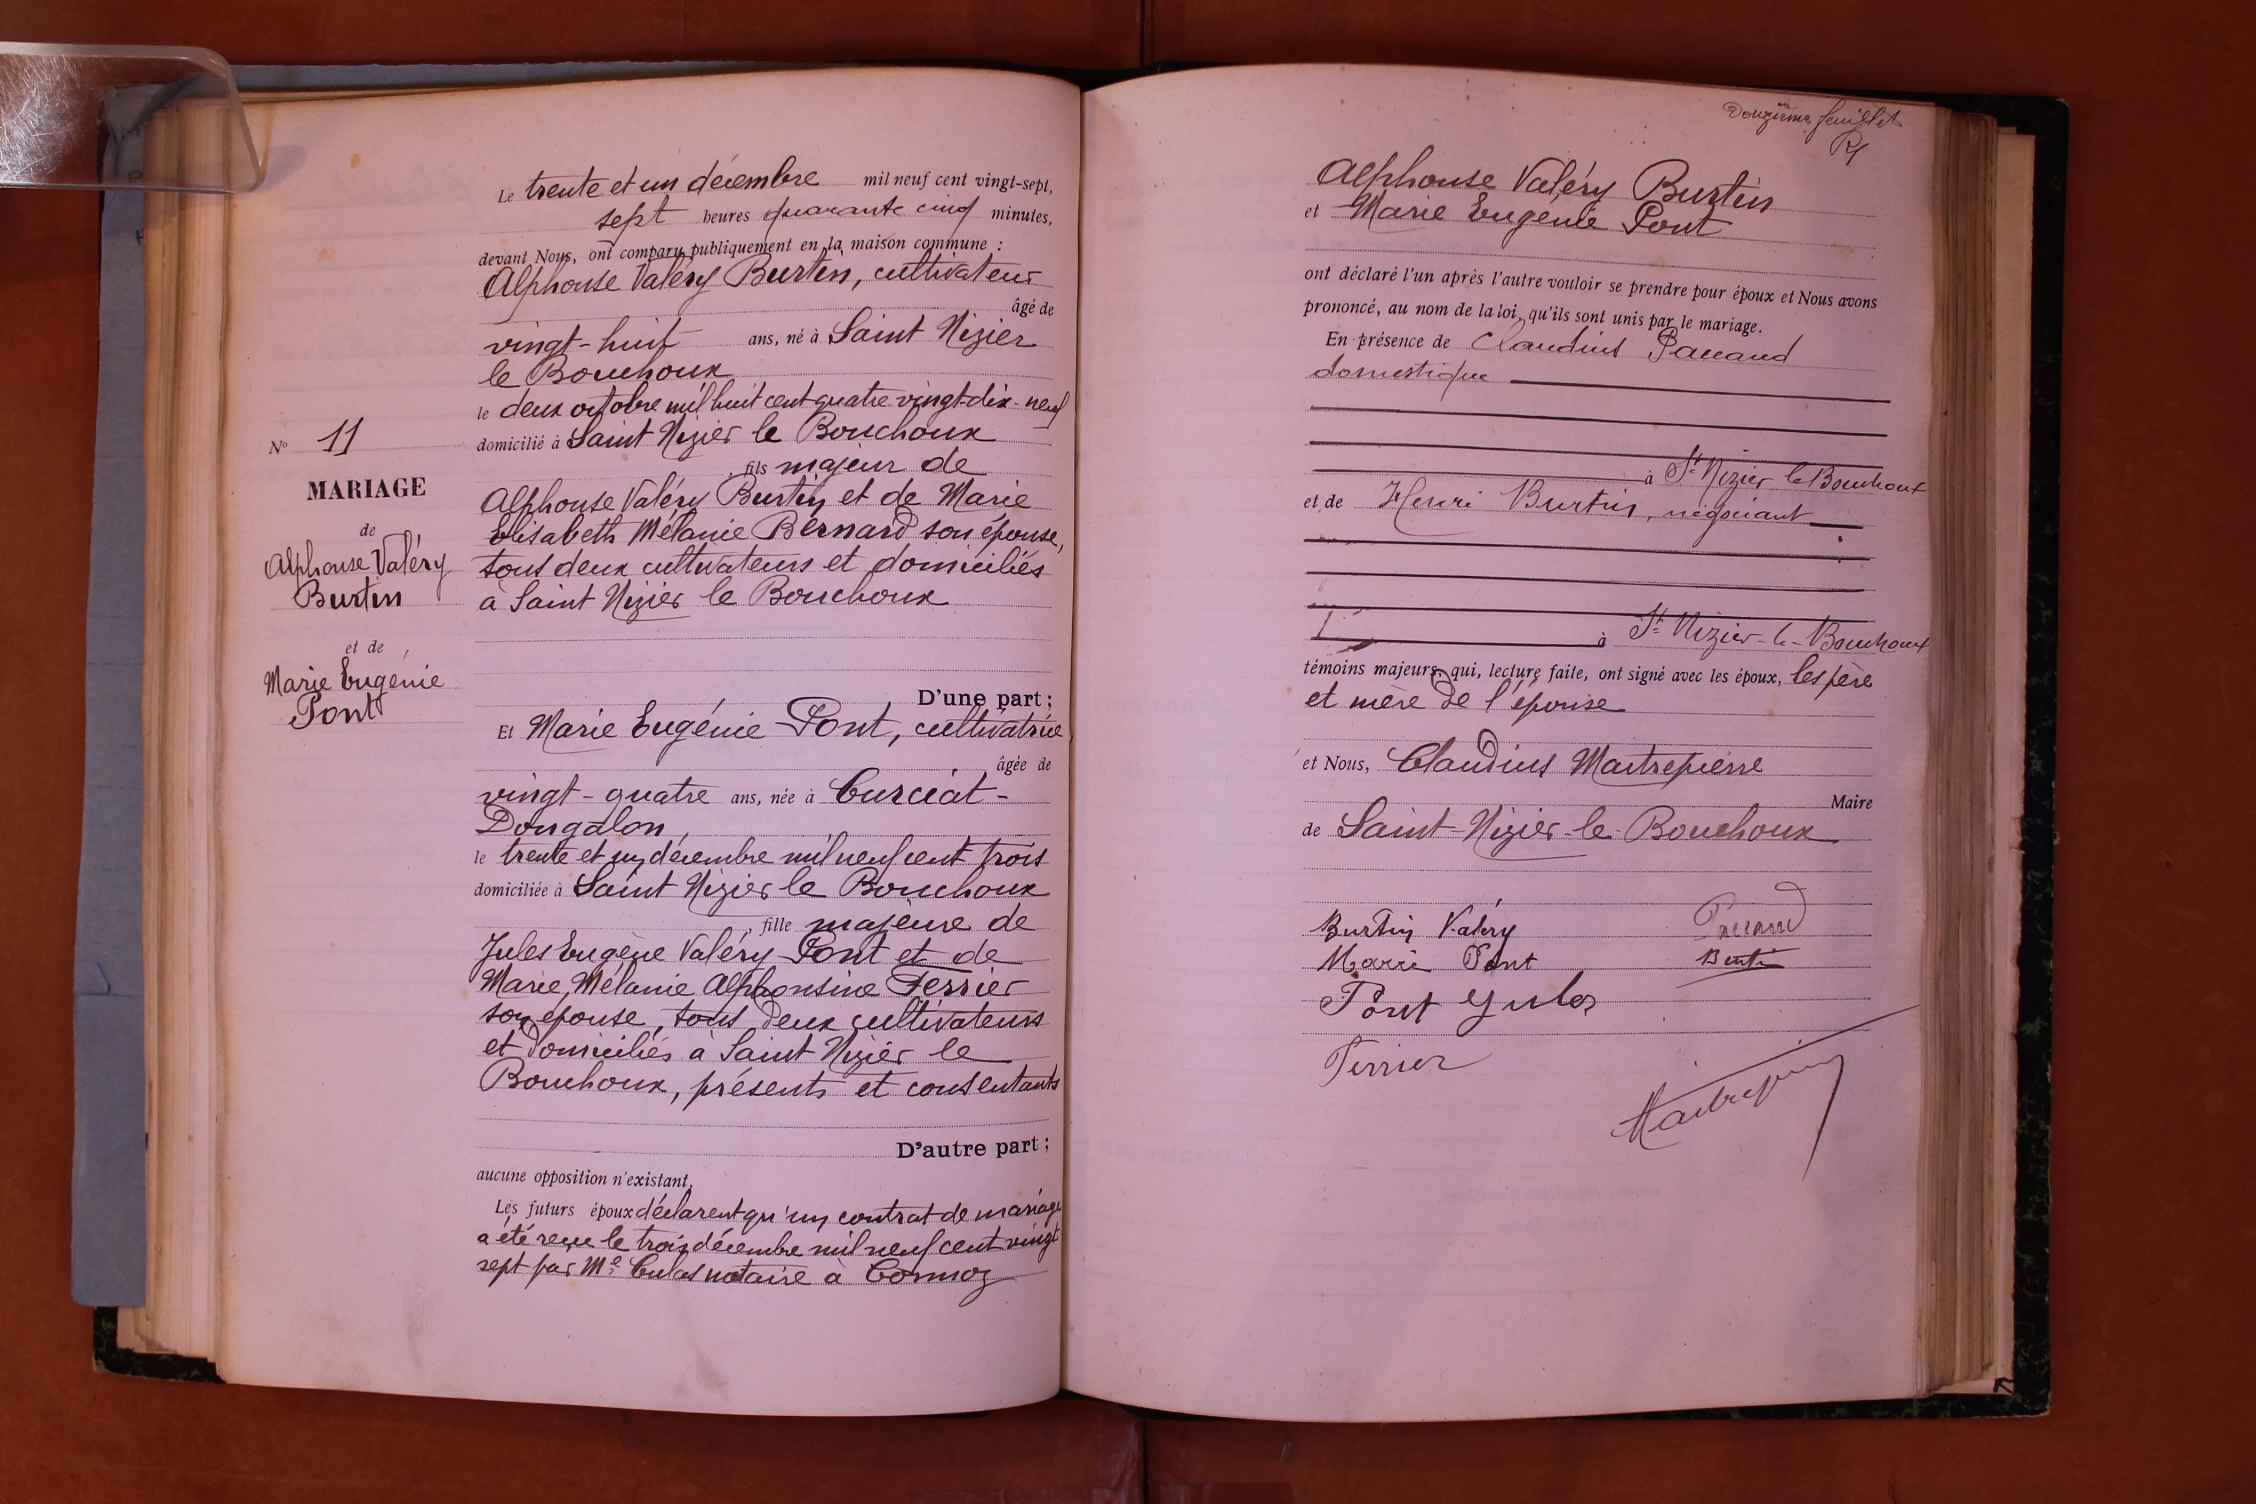 N° 11
MARIAGE
de
Alphonse Valéry
Burtin
et de
Marie Eugénie
Pont
Le trente et un décembre mil neuf cent vingt-sept,
sept heures quarante cinq minutes,
devant Nous, ont comparu publiquement en la maison commune :
Alphonse Valéry Burtin, cultivateur
âgé de
vingt-huit ans, né à Saint Nizier
le Bouchoux
le deux octobre mil huit cent quatre-vingt-dix-neuf
domicilié à Saint Nizier le Bouchoux
fils majeur de
Alphonse Valéry Burtin et de Marie
Elisabeth Mélanie Bernard son épouse,
tous deux cultivateurs et domiciliés
à Saint Nizier le Bouchoux
D'une part ;
Et Marie Eugénie Pont, cultivatrice
âgée de
vingt-quatre ans, née à Curciat-
Dongalon
le trente et un décembre mil neuf cent trois
domiciliée à Saint Nizier le Bouchoux
, fille majeure de
Jules Eugène Valéry Pont et de
Marie Mélanie Alphonsine Ferrier
son épouse, tous deux cultivateurs
et domiciliés à Saint Nizier le
Bouchoux, présents et consentants
D'autre part ;
aucune opposition n'existant.
Les futurs époux déclarent qu'un contrat de mariage
a été reçu le trois décembre mil neuf cent vingt
sept par Me Culas notaire à Cormoz
Douzième feuillet
Alphonse Valéry Burtin
et Marie Eugénie Pont
ont déclaré l'un après l'autre vouloir se prendre pour époux et Nous avons
prononcé, au nom de la loi, qu'ils sont unis par le mariage.
En présence de Claudius Paccaud
domestique
à St Nizier le Bouchoux
et de Henri Burtin, négociant
à St Nizier-le-Bouchoux
témoins majeurs, qui, lecture faite, ont signé avec les époux, les père
et mère de l'épouse
et Nous, Claudius Maitrepierre
Maire
de Saint-Nizier-le-Bouchoux
Burtin Valéry Paccaud
Marie Pont Burtin
Pont Jules
Ferrier
Maitrepierre